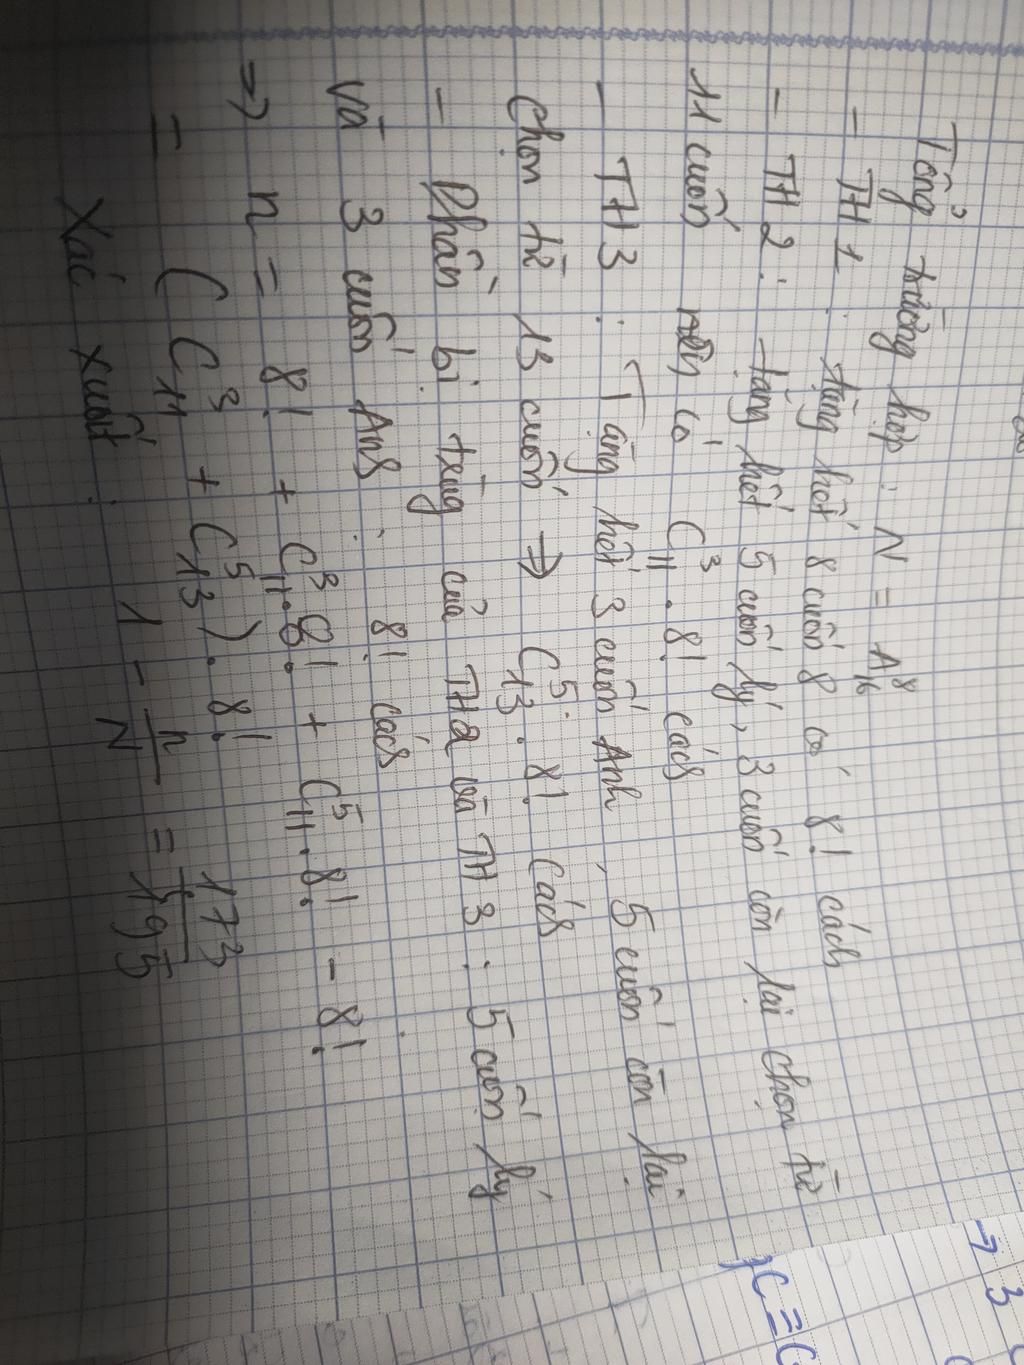 Tổng trường hợp : N = A⁸₁₆
- TH1 : tặng hết 8 cuốn 8 có 8! cách
- TH2 : tặng hết 5 cuốn lý, 3 cuốn còn lại chọn từ
11 cuốn nên có C³₁₁ . 8! cách
- TH3 : Tặng hết 3 cuốn Anh, 5 cuốn còn lại
chọn từ 13 cuốn → C⁵₁₃ . 8! cách
- Phần bị trùng của TH2 và TH3 : 5 cuốn lý
và 3 cuốn Anh : 8! cách
=> n = 8! + C³₁₁.8! + C⁵₁₁.8! - 8!
= (C³₁₁ + C⁵₁₃).8!
Xác xuất : 1 - n/N = 173/195
→ 3
C ≡ C